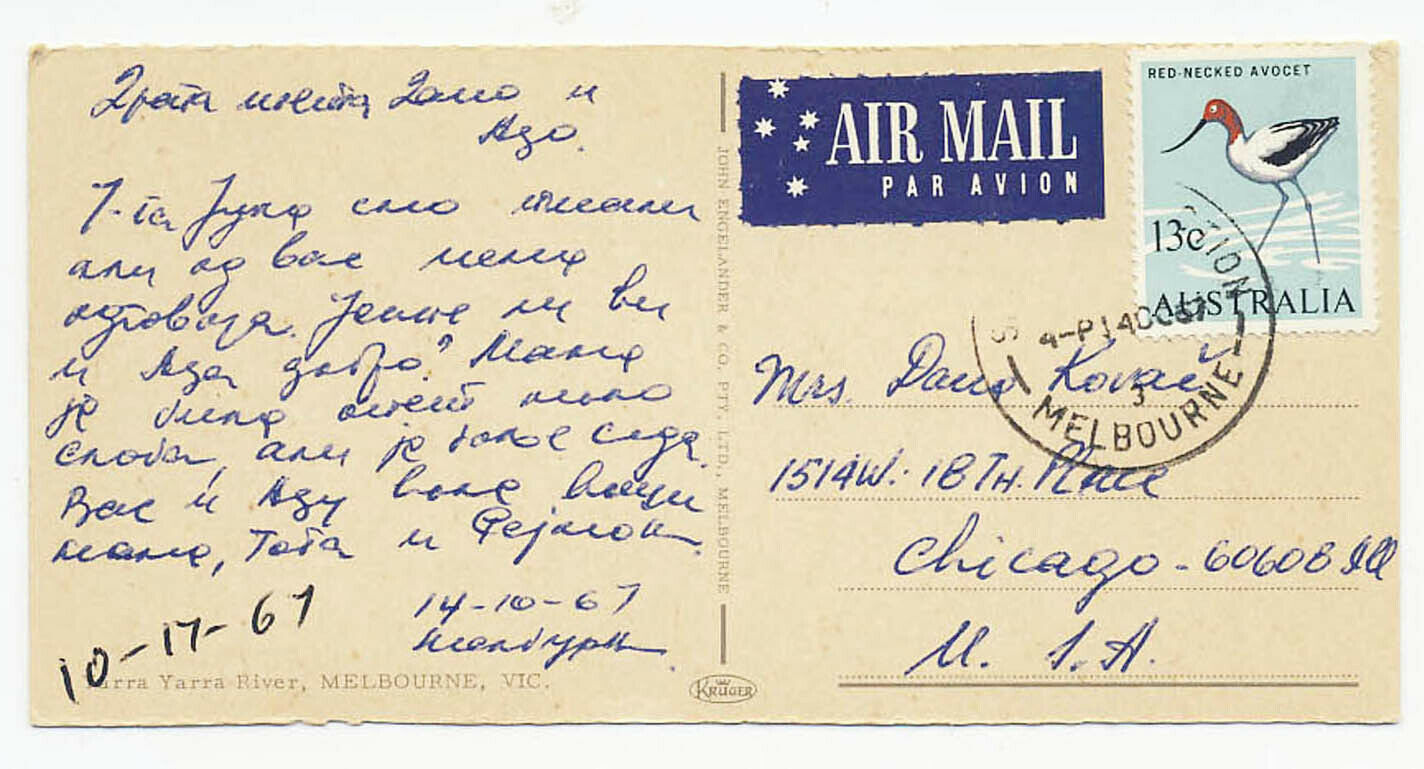 Драга
и
Адо.
7-га Јуна смо писали
али од вас нема
одговора. Јесте ли ви
и Ада добро? Мама
је била опет мало
слаба, али је боље сада.
Вас и Аду воле ваши
мама, Тата и
14-10-67
Мелбурн
10-17-67
Yarra Yarra River, MELBOURNE, VIC.
JOHN ENGELANDER & CO. PTY. LTD., MELBOURNE
KRÜGER
AIR MAIL
PAR AVION
RED-NECKED AVOCET
13c
AUSTRALIA
4-P 14OC67
3
MELBOURNE
Mrs. Kovač
1514W. 18TH. Place
Chicago - 60608 Ill
U. S. A.